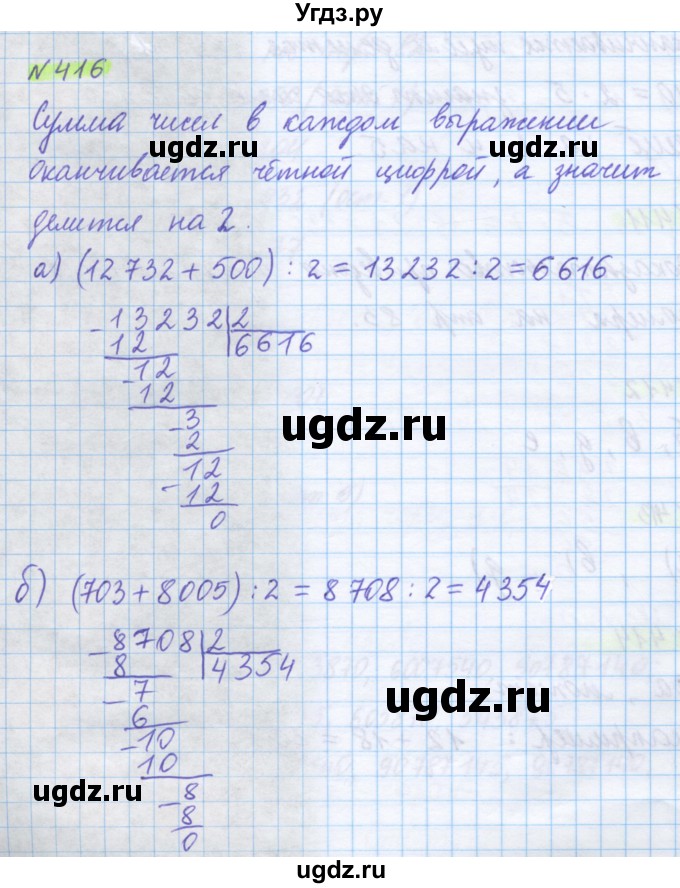 Угдз.ру
№416
Сумма чисел в каждом выражении
ugdz.ru ugdz.ru
оканчивается чётной цифрой, а значит
делится на 2.
а) (12 732 + 500) : 2 = 13 232 : 2 = 6616
- 13232 | 2
12 6616
- 12
12
ugdz.ru
- 3
2
12
- 12
0
б) (703 + 8005) : 2 = 8 708 : 2 = 4 354
- 8708 | 2
8 4354
- 7
ugdz.ru
6
- 10
10
ugdz.ru ugdz.ru
- 8
8
0
ugdz.ru